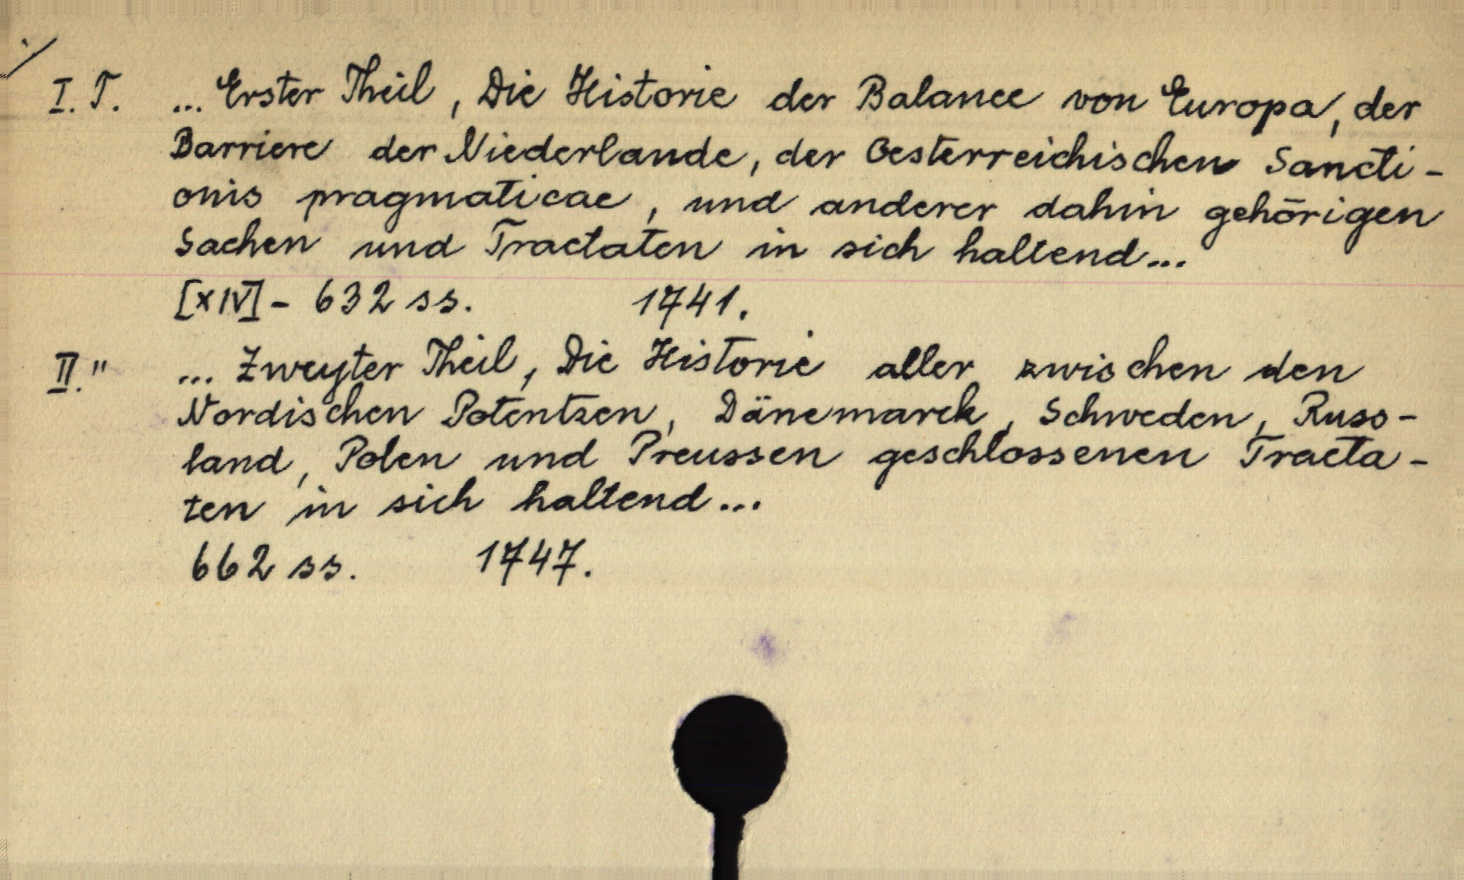 ./.
I. T. ... Erster Theil, Die Historie der Balance von Europa, der
Barriere der Niederlande, der Oesterreichischen Sancti-
onis pragmaticae, und anderer dahin gehörigen
Sachen und Tractaten in sich haltend...
[XIV] - 632 ss. 1741.
II. " ... Zweyter Theil, Die Historie aller zwischen den
Nordischen Potentzen, Dänemarck, Schweden, Russ-
land, Polen und Preussen geschlossenen Tracta-
ten in sich haltend...
662 ss. 1747.